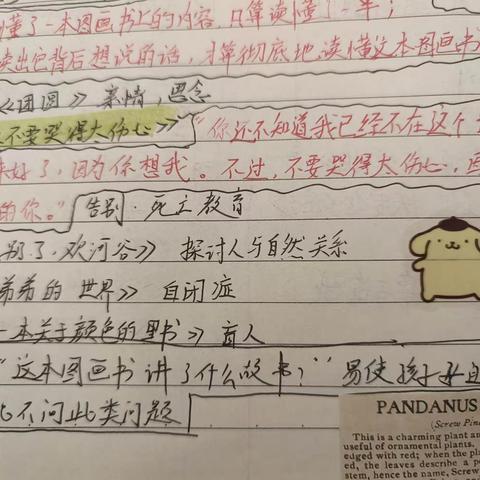 懂了一本图画书上的内容，只算读懂了一半；
读出它背后想说的话，才算彻底地读懂这本图画书
《团圆》 亲情，思念
不要哭得太伤心》 "你还不知道我已经不在这个
好了，因为你想我。不过，不要哭得太伤心，
的你。" 告别·死亡教育
别了，欢河谷》 探讨人与自然关系
弟弟的世界》 自闭症
一本关于颜色的黑书》 盲人
"这本图画书讲了什么故事？" 易使孩子
不问此类问题
PANDANUS
(Screw Pine
This is a charming plant an
useful of ornamental plants.
edged with red; when the pla
ed, the leaves describe a pe
stem, hence the name, Screw